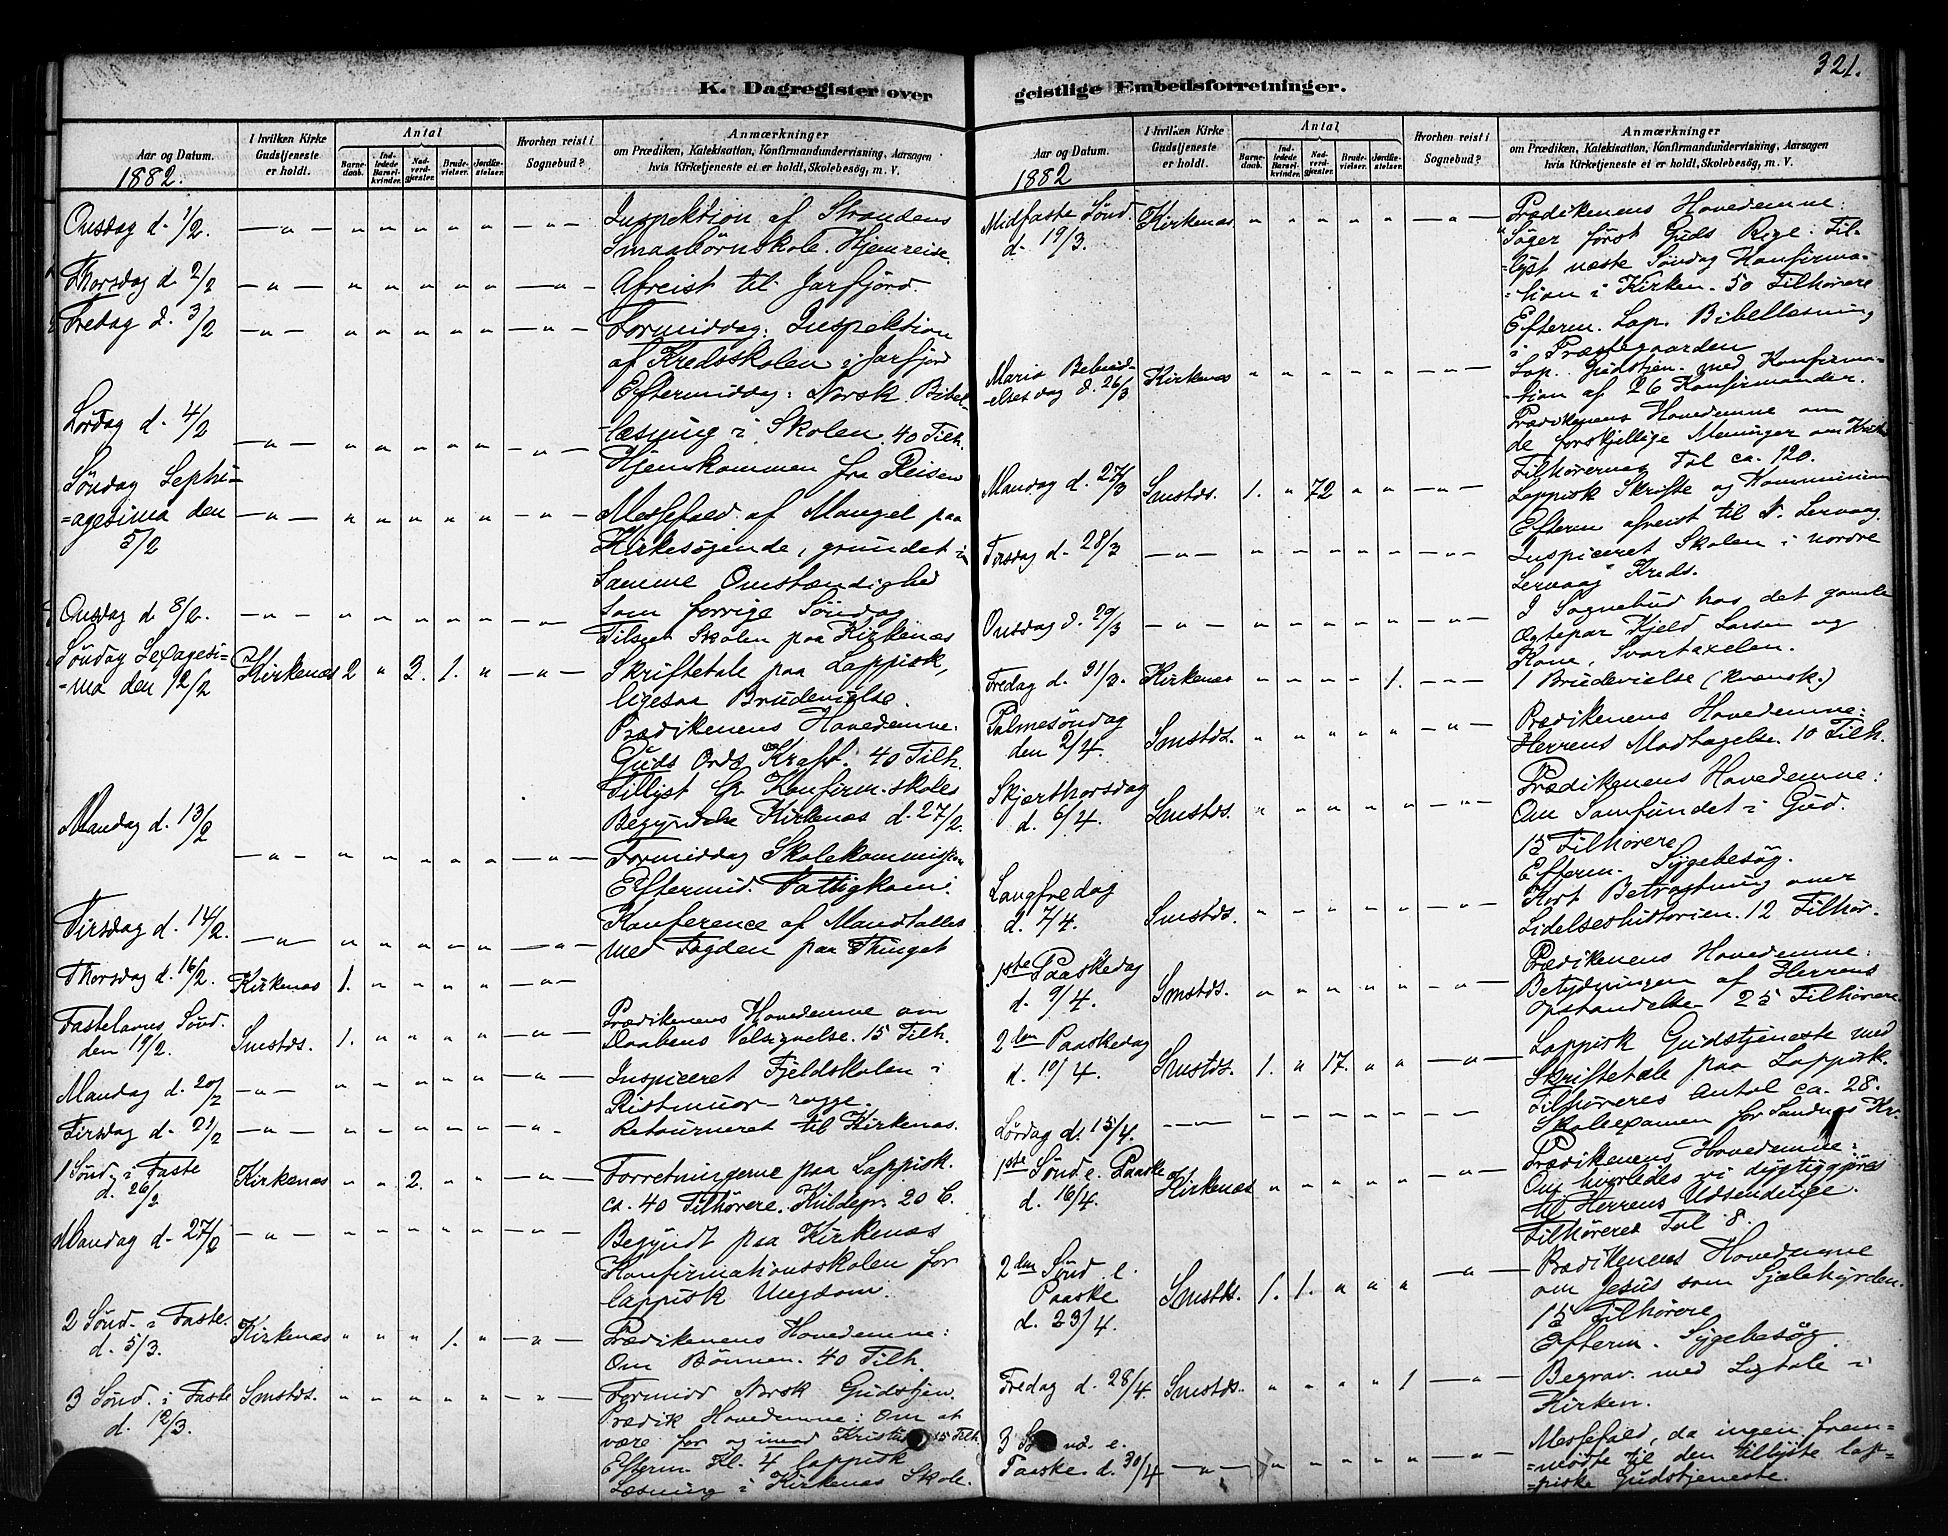 321.
K. Dagregister over geistlige Embedsforretninger.
Aar og Datum.
1882.
I hvilken Kirke Gudstjeneste er holdt.
Antal
Barnedaab.
Indledede Barselkvinder.
Nadverdgjæster.
Brudevielser.
Jordfæstelser.
Hvorhen reist i Sognebud?
Anmærkninger
om Prædiken, Katekisation, Konfirmandundervisning, Aarsagen
hvis Kirketjeneste ei er holdt, Skolebesøg, m. V.
Onsdag d. 1/2. — " — " " " " " — " — Inspektion af Strandens
Smaabørnskole. Hjemreise.
Thorsdag d. 2/2 — " — " " " " " — " — Afreist til Jarfjord
Fredag d. 3/2 — " — " " " " " — " — Formiddag: Inspektion
af Kredsskolen i Jarfjord
Eftermiddag: Norsk Bibel-
læsning i Skolen. 40 Tilh.
Lørdag d. 4/2 — " — " " " " " — " — Hjemkommen fra Reisen
Søndag Septu-
=agesima den
5/2 — " — " " " " " — " — Messefald af Mangel paa
Kirkesøgende, grundet i
Samme Omstændighed
som forrige Søndag
Onsdag d. 8/2. — " — " " " " " — " — Tilseet Skolen paa Kirkenæs
Søndag Sexagesi-
=ma den 12/2 Kirkenæs 2 " 3. 1. " — " — Skriftetale paa Lappisk,
ligesaa Brudevielse.
Prædikenens Hovedemne:
Guds Ords Kraft. 40 Tilh.
Tillyst Konfirm.skoles
Begyndelse Kirkenæs d. 27/2.
Mandag d. 13/2 — " — " " " " " — " — Formiddag Skolekommission
Eftermid. Fattigkom:
Tirsdag d. 14/2. — " — " " " " " — " — Konference af Mandtallet
med Fogden paa Thinget
Thorsdag d. 16/2. Kirkenæs 1. " " " " — " —
Fastelavns Sønd.
den 19/2. Smstds. 1. " " " " — " — Prædikenens Hovedemne om
Daabens Velsignelse. 15 Tilh.
Mandag d. 20/2 — " — " " " " " — " — Inspiceret Fjeldskolen i
Tirsdag d. 21/2 — " — " " " " " — " — Retourneret til Kirkenæs.
1 Sønd. i Faste
d. 26/2 Kirkenæs " " 2. " " — " — Forretningerne paa Lappisk.
ca. 40 Tilhørere. Kuldegr. 20 C.
Mandag d. 27/2 — " — " " " " " — " — Begyndt paa Kirkenæs
Konfirmationsskolen for
lappisk Ungdom.
2 Sønd. i Faste.
d. 5/3. Kirkenæs " " " 1. " — " — Prædikenens Hovedemne:
Om Bønnen. 40 Tilh.
3 Sønd. i Faste
d. 12/3. Smstds. " " " " " — " — Formid Norsk Gudstjen.
Prædik Hovedemne: Om at
være for og imod Kristus 15 Tilh.
Efterm Kl. 4 lappisk
Læsning i Kirkenæs Skole.
Aar og Datum.
1882
I hvilken Kirke Gudstjeneste er holdt.
Antal
Barnedaab.
Indledede Barselkvinder.
Nadverdgjæster.
Brudevielser.
Jordfæstelser.
Hvorhen reist i Sognebud?
Anmærkninger
om Prædiken, Katekisation, Konfirmandundervisning, Aarsagen
hvis Kirketjeneste ei er holdt, Skolebesøg, m. V.
Midfaste Sønd.
d. 19/3. Kirkenæs " " " " " — " — Prædikenens Hovedemne:
Søger først Guds Rige: Til-
lyst næste Søndag Konfirma-
=tion i Kirken. 50 Tilhørere
Efterm. Lap. Bibellæsning
i Præstegaarden
Maria Bebud-
=elses dag d. 26/3 Kirkenæs " " " " " — " — Lap. Gudstjen. med Konfirma-
=tion af 26 Konfirmander.
Prædikenens Hovedemne om
de forskjellige Meninger om
Tilhørernes Tal ca. 120.
Mandag d. 27/3 Smstds. 1. " 72 " " — " — Lappisk Skrifte og Kommunion
Efterm afreist til N. Lervaag.
Tirsdag d. 28/3 — " — " " " " " — " — Inspiceret Skolen i nordre
Lervaag Kreds.
Onsdag d. 29/3 — " — " " " " " — " — I Sognebud hos det gamle
Ægtepar Kjeld Larsen og
Kone, Svartaxelen.
Fredag d. 31/3. Kirkenæs " " " " 1. — " — 1 Brudevielse (kvænsk.)
Palmesøndag
den 2/4. Smstds. " " " " " — " — Prædikenens Hovedemne:
Herrens Modtagelse. 10 Tilh.
Skjærthorsdag
d. 6/4. Smstds. " " " " " — " — Prædikenens Hovedemne:
Om Samfundet i Gud.
15 Tilhørere
Efterm. Sygebesøg.
Langfredag
d. 7/4. Smstds. " " " " " — " — Kort Betragtning over
Lidelseshistorien. 12 Tilhør.
1ste Paaskedag
d. 9/4. Smstds. " " " " " — " — Prædikenens Hovedemne:
Betydningen af Herrens
Opstandelse 25 Tilhørere
2den Paaskedag
d. 10/4. Smstds. 1. " 17. " " — " — Lappisk Gudstjeneste med
Skriftetale paa Lappisk.
Tilhøreres Antal ca. 28.
Lørdag d. 15/4. — " — " " " " " — " — Skoleexamen for Sandnes Kr.
1ste Sønd e. Paaske
d. 16/4. Kirkenæs " " " " " — " — Prædikenens Hovedemne:
Om hvorledes vi dygtiggjøres
til Herrens Udsendinge.
Tilhøreres Tal 8.
2den Sønd e.
Paaske
d. 23/4. Smstds. 1. 1. " " " — " — Prædikenens Hovedemne
om Jesus som Sjælehyrden.
15 Tilhørere
Efterm. Sygebesøg
Fredag d. 28/4. Smstds. " " " " 1 — " — Begrav. med Ligtale i
Kirken.
3 Sønd. e.
Paaske d. 30/4 — " — " " " " " — " — Messefald, da ingen frem-
=mødte til den tillyste lap-
=piske Gudstjeneste.